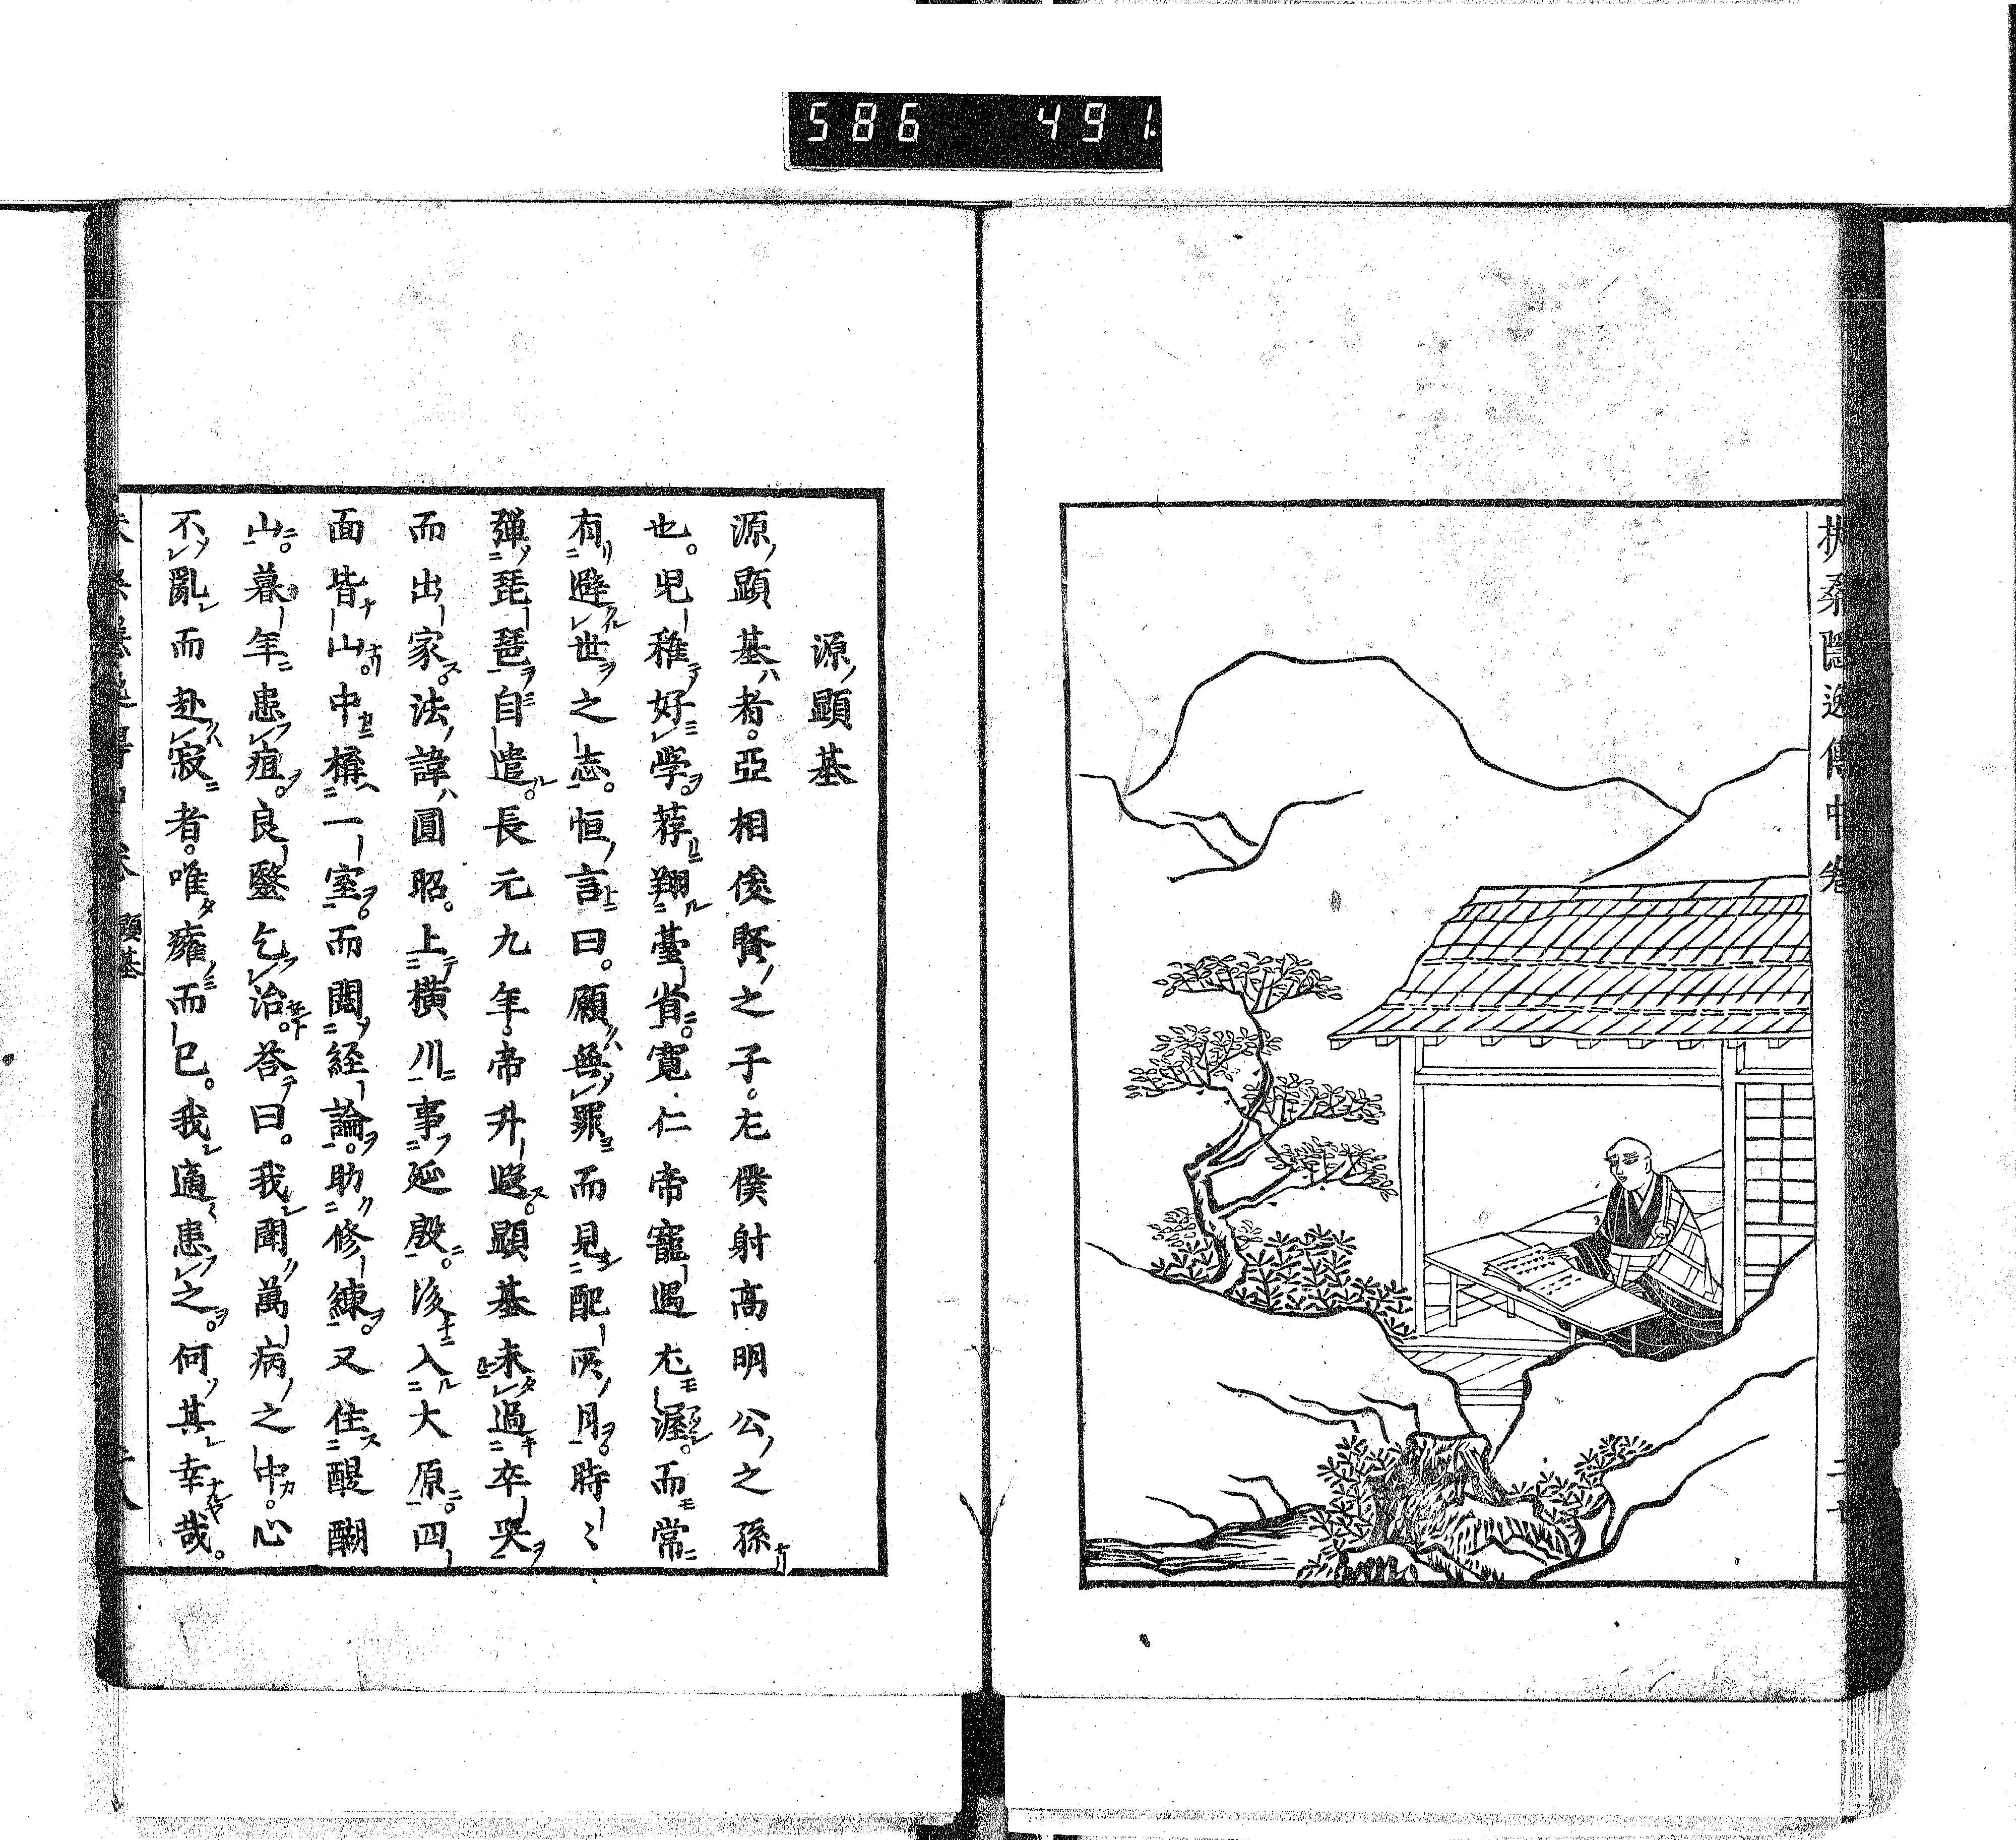 586 491.
扶桑隱逸傳中卷
源顯基
源顯基者。亞相俊賢之子。尢僕射高明公之孫
也。兒稚好學。荐翔臺省。寬仁帝寵遇尢渥。而常
有避世之志。恒言曰。願無罪而見配所月。時〻
彈琵琶自遣。長元九年。帝升遐。顯基未過卒哭
而出家。法諱圓昭。上橫川事延殷。後入大原。四
面皆山。中構一室。而閱經論。助修練。又住醍醐
山。暮年患疽。良醫乞治。荅曰。我聞萬病之中。心
不亂而赴寂者。唯癰而已。我適患之。何其幸哉。
顯基